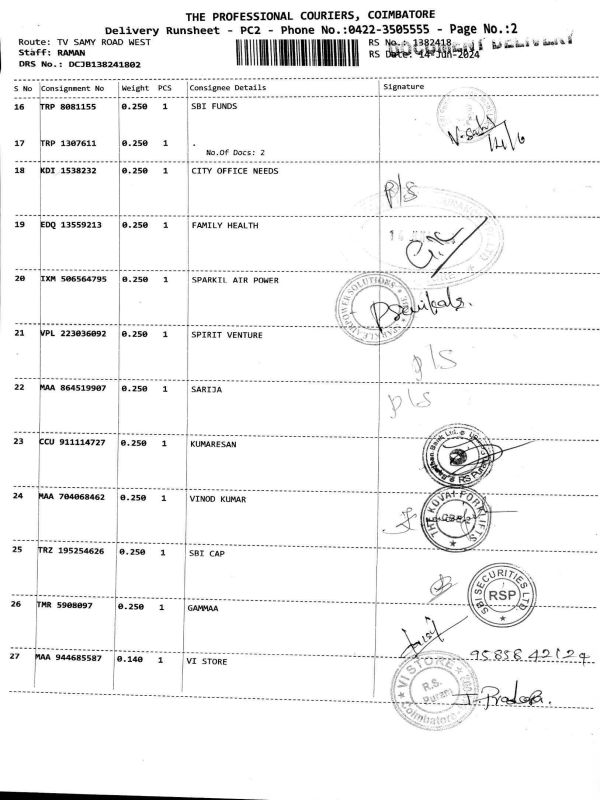 THE PROFESSIONAL COURIERS, COIMBATORE
Delivery Runsheet - PC2 - Phone No.:0422-3505555 - Page No.:2
Route: TV SAMY ROAD WEST RS No.: 1382418
Staff: RAMAN RS Date: 14-Jun-2024
DRS No.: DCJB138241802
DOCUMENT DELIVERY
S No Consignment No Weight PCS Consignee Details Signature
16 TRP 8081155 0.250 1 SBI FUNDS
17 TRP 1307611 0.250 1 .
No.Of Docs: 2
14/6
18 KDI 1538232 0.250 1 CITY OFFICE NEEDS
P/S
19 EDQ 13559213 0.250 1 FAMILY HEALTH
20 IXM 506564795 0.250 1 SPARKIL AIR POWER
21 VPL 223036092 0.250 1 SPIRIT VENTURE
P/S
22 MAA 864519907 0.250 1 SARIJA
P/S
23 CCU 911114727 0.250 1 KUMARESAN
24 MAA 704068462 0.250 1 VINOD KUMAR
THE KOVAI FORKLIFTS
25 TRZ 195254626 0.250 1 SBI CAP
SBI SECURITIES LTD
RSP
26 TMR 5908097 0.250 1 GAMMAA
27 MAA 944685587 0.140 1 VI STORE
VI STORE
R.S.
Puram
Coimbatore